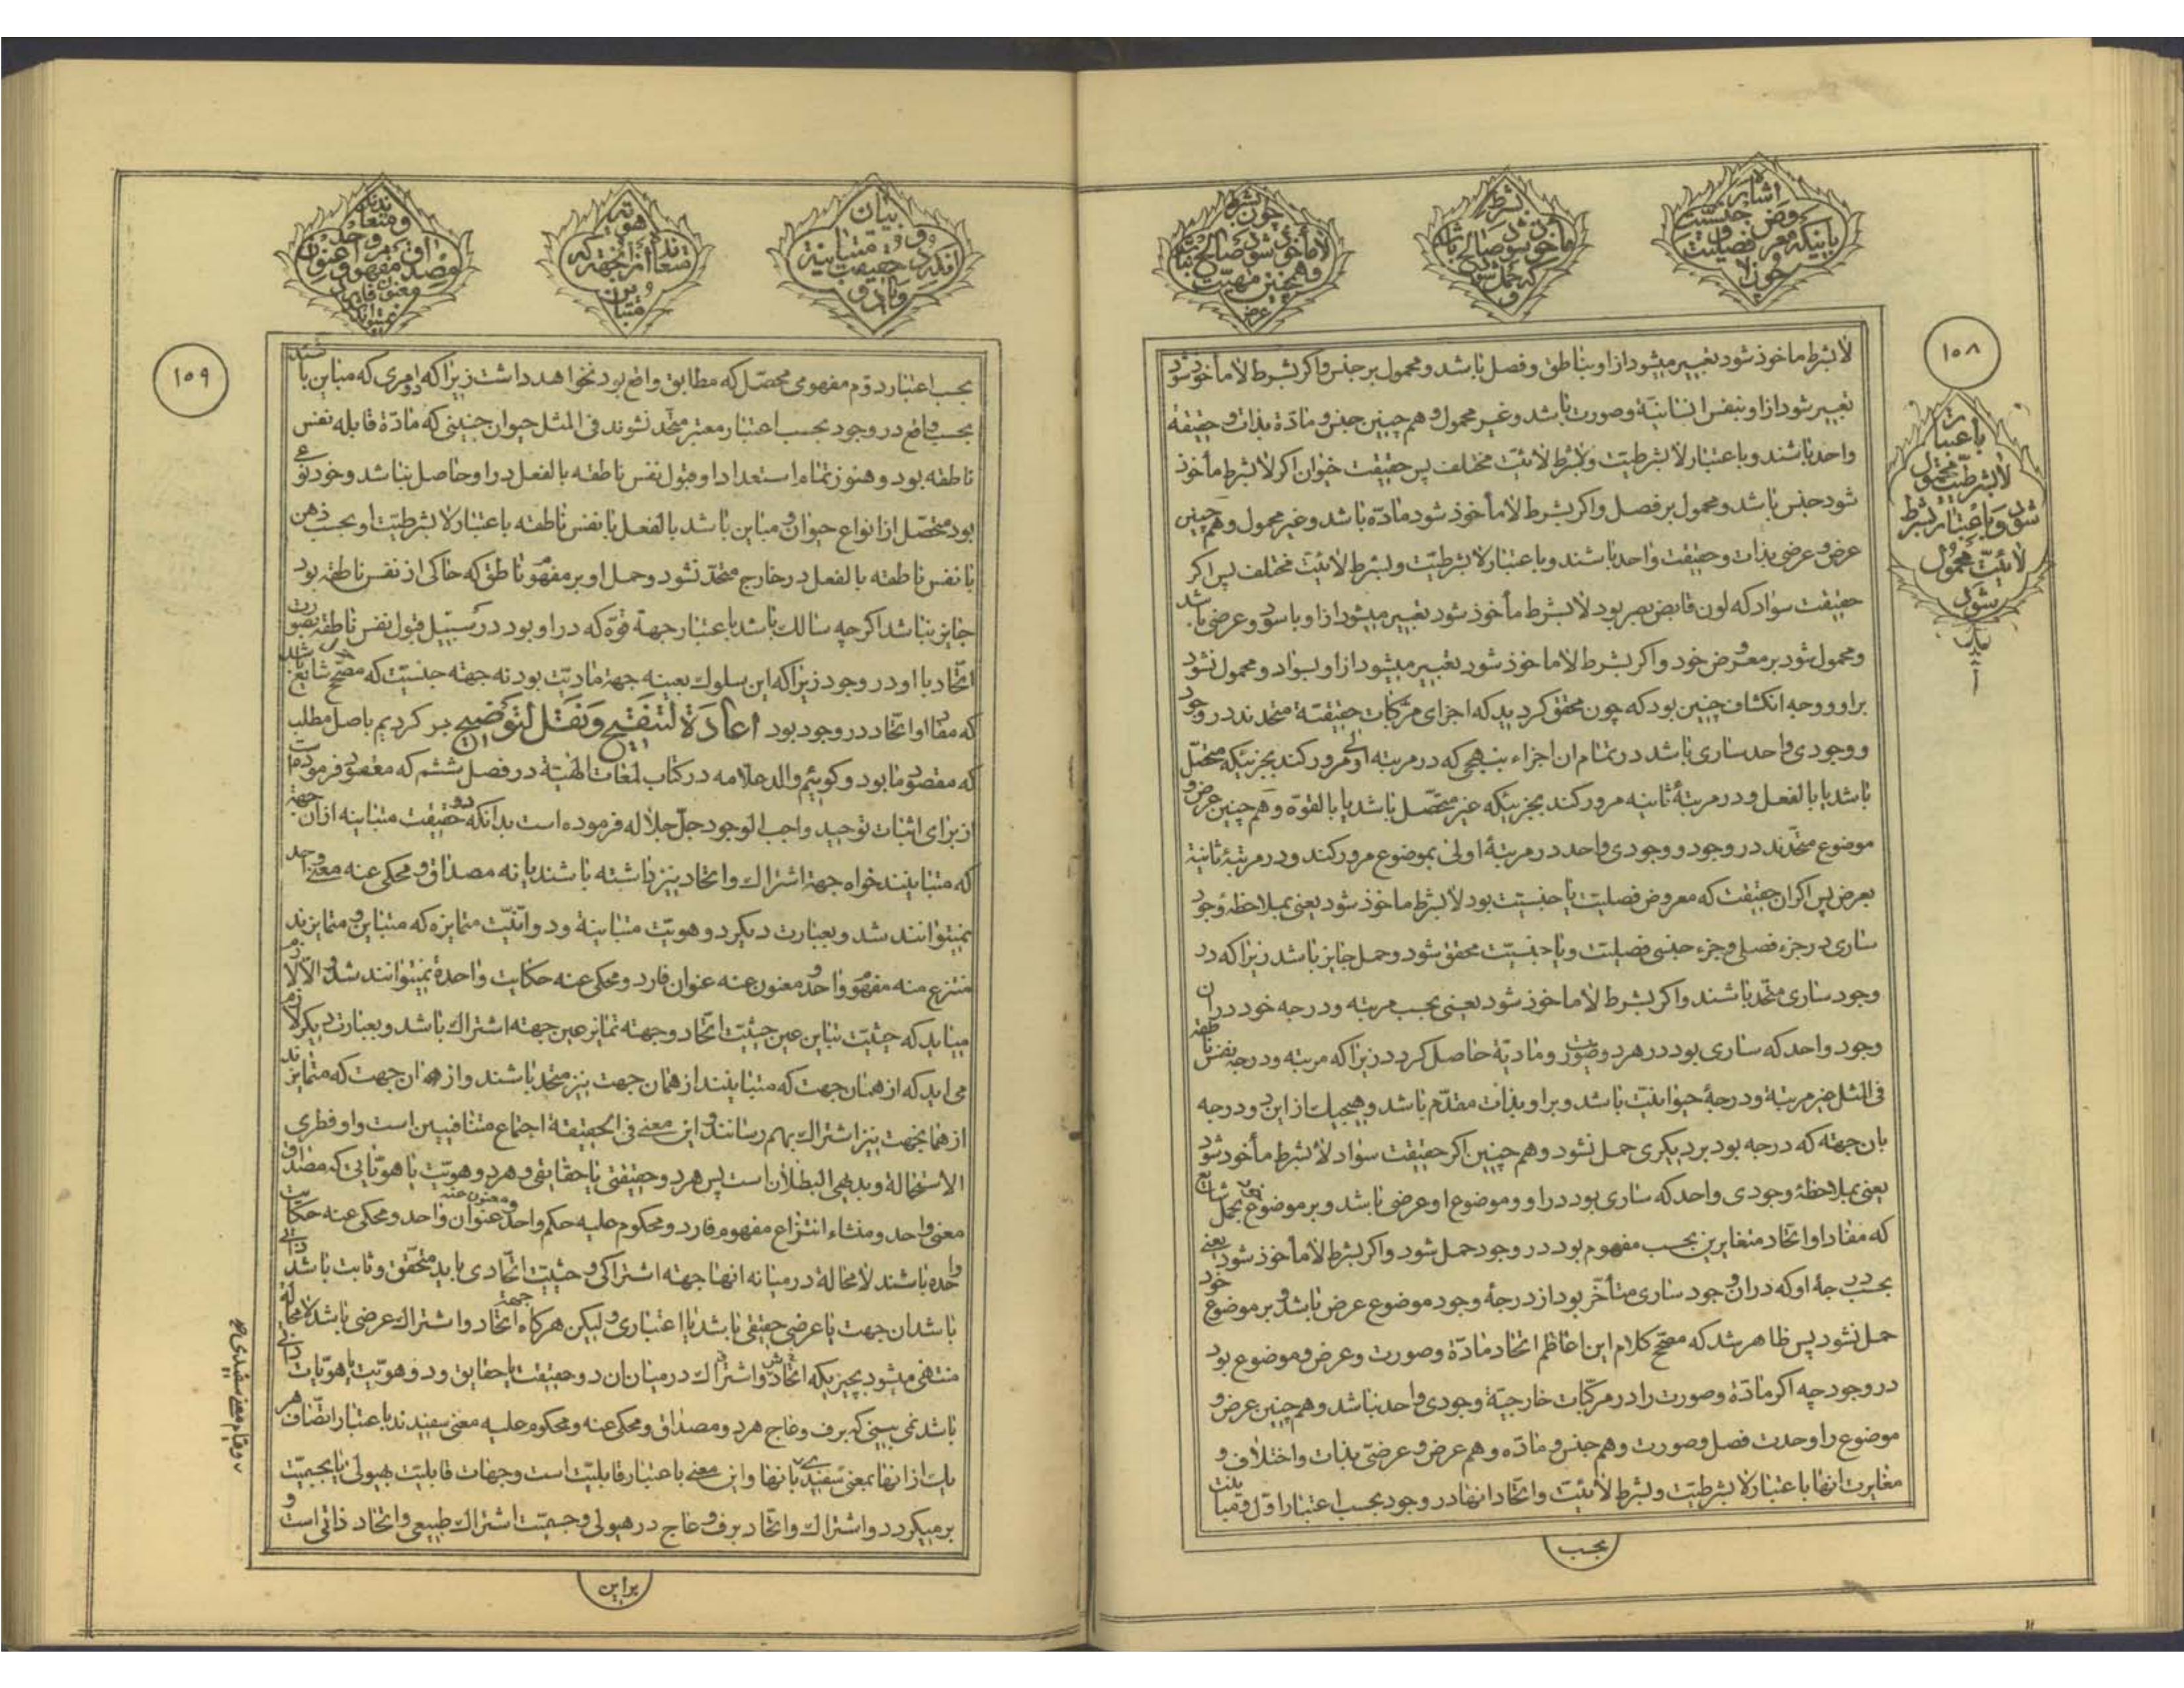 ۱۰۸
باعتبار
لابشرطیت محمول
شود و باعتبار بشرط
لائیت محمول
نشود
لابشرط ماخوذ شود تعبیر میشود از او بناطق و فصل باشد و محمول بر جنس و اکر بشرط لا مأخوذ شود
تعبیر شود از او بنفس انسانیة و صورت باشد و غیر محمول و هم چنین جنس و مادّة بذات و حقیقة
واحد باشند و باعتبار لابشرطیت و بشرط لائیت مختلف پس حقیقت حیوان اکر لابشرط مأخوذ
شود جنس باشد و محمول بر فصل و اکر بشرط لا مأخوذ شود مادّه باشد و غیر محمول و هم چنین
عرض و عرضی بذات و حقیقت واحد باشند و باعتبار لابشرطیّت و بشرط لائیت مختلف پس اکر
حقیقت سواد که لون قابض بصر بود لابشرط مأخوذ شود تعبیر میشود از او باسود و عرضی باشد
و محمول شود بر معروض خود و اکر بشرط لا ماخوذ شود تعبیر میشود از او بسواد و محمول نشود
بر او و وجه انکشاف چنین بود که چون محقق کردید که اجزای مرکبات حقیقیّة متحدند در وجود
و وجودی واحد ساری باشد در تمام ان اجزاء بنهجی که در مرتبه اولی مرور کند بجزئیکه متحصّل
باشد یا بالفعل و در مرتبهٔ ثانیه مرور کند بجزئیکه غیر متحصّل باشد یا بالقوّه و هم چنین عرض و
موضوع متحّدند در وجود و وجودی واحد در مرتبهٔ اولی بموضوع مرور کند و در مرتبهٔ ثانیة
بعرض پس اکر ان حقیقت که معروض فصلیت یا جنسیت بود لابشرط ماخوذ شود یعنی بملاحظهٔ وجود
ساری در جزء فصلی و جزء جنسی فصلیت و یا جنسیّت محقق شود و حمل جایز باشد زیرا که در
وجود ساری متحّد باشند و اکر بشرط لا ماخوذ شود یعنی بحسب مرتبه و درجه خود در ان
وجود واحد که ساری بود در هر دو صورت و مادیّة حاصل کردد زیرا که مرتبه و درجه نفس ناطقه
فی المثل غیر مرتبة و درجهٔ حیوانیّت باشد و بر او بذات مقدّم باشد و هیچیك از این دو درجه
بان جهته که درجه بود بر دیکری حمل نشود و هم چنین اکر حقیقت سواد لابشرط مأخوذ شود
یعنی بملاحظهٔ وجودی واحد که ساری بود در او و موضوع او عرضی باشد و بر موضوع خود بحمل شایع
که مفاد او اتحاد متغایرین بحسب مفهوم بود در وجود حمل شود و اکر بشرط لا مأخوذ شود یعنی
بحسب درجهٔ او که در ان وجود ساری متأخّر بود از درجهٔ وجود موضوع عرض باشد و بر موضوع خود
حمل نشود پس ظاهر شد که مصحّح کلام این اعاظم اتحاد مادّة و صورت و عرض و موضوع بود
در وجود چه اکر مادّة و صورت را در مرکّبات خارجیّة وجودی واحد نباشد و هم چنین عرض و
موضوع را وحدت فصل و صورت و هم جنس و مادّه و هم عرض و عرضیّ بذات و اختلاف و
مغایرت انها باعتبار لابشرطیّت و بشرط لائیّت و اتّحاد انها در وجود بحسب اعتبار اوّل و مباینت
بحسب
۱۰۹
بحسب اعتبار دوّم مفهومی محصّل که مطابق واقع بود نخواهد داشت زیرا که دو امری که مباین باشند
بحسب واقع در وجود بحسب اعتبار معتبر متّحد نشوند فی المثل حیوان جنینی که مادّة قابله نفس
ناطقه بود و هنوز تمام استعداد او قبول نفس ناطقه بالفعل در او حاصل نباشد و خود نوعی
بود متحصّل از انواع حیوان و مباین باشد بالفعل با نفس ناطقه باعتبار لابشرطیّت او بحسب ذهن
با نفس ناطقه بالفعل در خارج متحدّ نشود و حمل او بر مفهوم ناطق که حاکی از نفس ناطقه بود
جایز نباشد اکر چه سالك باشد باعتبار جهة قوّه که در او بود در سبیل قبول نفس ناطقه بصورت
اتّحاد با او در وجود زیرا که این سلوك بعینه جهة مادیّت بود نه جهته جنسیّت که مصحّح حمل شایع باشد
که مفاد او اتّحاد در وجود بود اعادَة لتنقیح وَنَقل لتوضیح بر کردیم باصل مطلب
که مقصود ما بود و کوئیم والد علامه در کتاب لمعات الهیّة در فصل ششم که معقود فرموده است
از برای اثبات توحید واجب الوجود جلّ جلاله فرموده است بدانکه دو حقیقت متباینه از ان جهته
که متباینند خواه جهته اشتراك و اتحاد نیز داشته باشند یا نه مصداق و محکی عنه معنی واحد
نمیتوانند شد و بعبارت دیکر دو هویّت متباینة و دو انیّت متمایزه که متباین و متمایزند
منتزع منه مفهوم واحد و معنون عنه عنوان فارد و محکی عنه حکایت واحدة نمیتوانند شد و الّا لازم
میاید که حیثیّت تباین عین حیثیّت اتّحاد و جهته تمایز عین جهته اشتراك باشد و بعبارت دیکر لازم
می اید که از همان جهت که متباینند از همان جهت نیز متحّد باشند و از همان جهت که متمایزند
از همانجهت نیز اشتراك بهم رسانند و این معنی فی الحقیقة اجتماع متنافیین است و او فطری
الاستحالة و بدیهی البطلان است پس هر دو حقیقتی یا حقایقی و هر دو هویّت یا هویّاتی که مصداق
معنی واحد و منشاء انتزاع مفهوم فارد و محکوم علیه حکم واحد و معنون عنه عنوان واحد و محکی عنه حکایت
واحده باشند لامحالة در میانه انها جهته اشتراکی و حیثیّت اتّحادی باید متحقّق و ثابت باشد ذاتی
باشد ان جهت یا عرضی حقیقی باشد یا اعتباری و لیکن هرکاه جهة اتحاد و اشتراك عرضی باشد لامحالة
منتهی میشود بچیزیکه اتحادش و اشتراك در میان ان دو حقیقت یا حقایق و دو هویّت یا هویّات ذاتی
باشد نمی بینی که برف و عاج هر دو مصداق و محکی عنه و محکوم علیه معنی سفیدند باعتبار اتّصاف هر
یك از انها بمعنی سفیدی بانها و این معنی باعتبار قابلیّت است و جهات قابلیّت بهیولی یا بجسمیّت
بر میکردد و اشتراك و اتّحاد برف و عاج در هیولی و جسمیّت اشتراك طبیعی و اتحاد ذاتی است و
براین